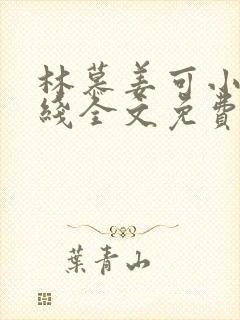 林慕姜可小
綫全文免費
葉青山